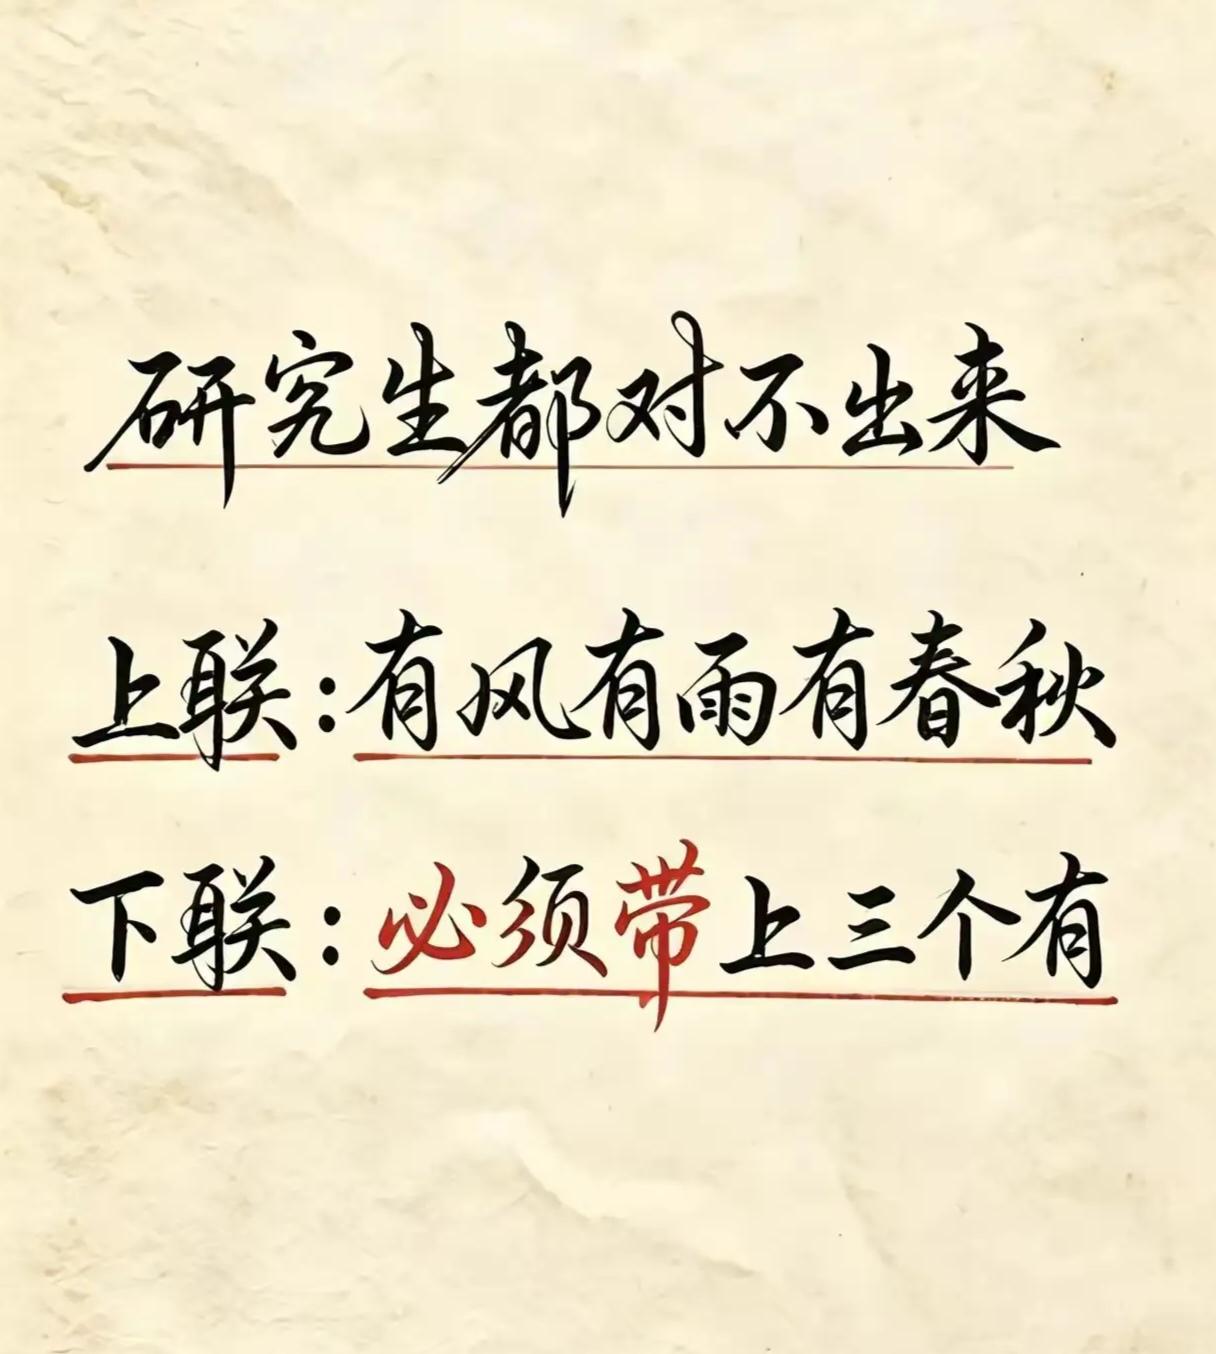 研究生都对不出来
上联:有风有雨有春秋
下联:必须带上三个有